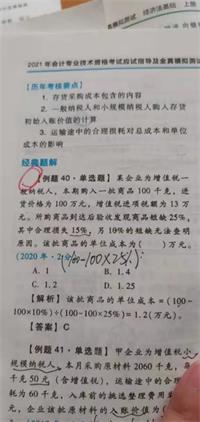 经济法基础 上册
2021年会计专业技术资格考试应试指导及全真模拟测试
【历年考核要点】
1. 存货采购成本包含的内容
2. 一般纳税人和小规模纳税人购入存货
初始入账价值的计算
3. 运输途中的合理损耗对总成本和单位
成本的影响
经典题解
【例题40·单选题】某企业为增值税一
般纳税人，本期购入一批商品100千克，进
货价格为100万元，增值税进项税额为13万
元。所购商品到达后验收发现商品短缺25%，
其中合理损失15%，另10%的短缺无法查明
原因。该批商品的单位成本为（ ）万元。
(2020年·2分)
(100-100×25%)
A. 1 B. 1.4
C. 1.2 D. 1.25
【解析】该批商品的单位成本=(100-
100×10%)÷(100-100×25%)=1.2(万元)。
【答案】C
【例题41·单选题】甲企业为增值税小
规模纳税人，本月采购原材料2060千克，每
千克50元(含增值税)，运输途中的合理
耗为60千克，入库前的挑选整理费用
元，企业该批原材料的入账价值为(